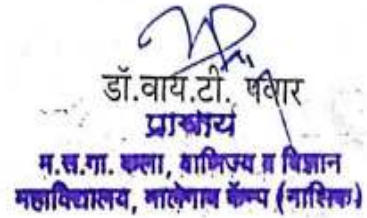 डॉ.वाय.टी. पवार
प्राचार्य
म.स.गा. कला, वाणिज्य व विज्ञान
महाविद्यालय, मालेगाव कॅम्प (नाशिक)